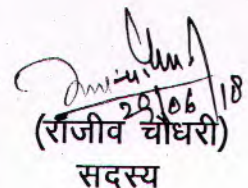 29/06/18
(राजीव चौधरी)
सदस्य